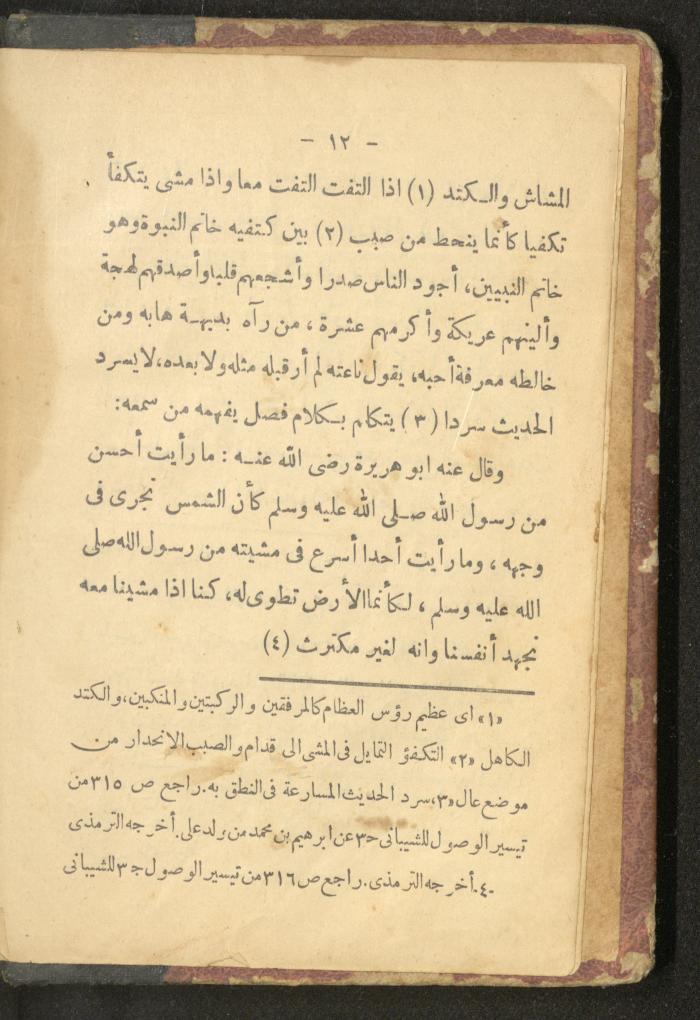 - ١٢ -
المشاش والكتد (١) اذا التفت التفت معا واذا مشى يتكفأ
تكفيا كأنما ينحط من صبب (٢) بين كتفيه خاتم النبوة وهو
خاتم النبيين، أجود الناس صدرا وأشجعهم قلبا وأصدقهم لهجة
وألينهم عريكة وأكرمهم عشرة، من رآه بديهة هابه ومن
خالطه معرفة أحبه، يقول ناعته لم أر قبله مثله ولا بعده، لا يسرد
الحديث سردا (٣) يتكلم بكلام فصل يفهمه من سمعه:
وقال عنه ابو هريرة رضى الله عنه: ما رأيت أحسن
من رسول الله صلى الله عليه وسلم كأن الشمس تجرى فى
وجهه، وما رأيت أحدا أسرع فى مشيته من رسول الله صلى
الله عليه وسلم، لكأنما الأرض تطوى له، كنا اذا مشينا معه
نجهد أنفسنا وانه لغير مكترث (٤)
«١» اى عظيم رؤس العظام كالمرفقين والركبتين والمنكبين، والكتد
الكاهل «٢» التكفؤ التمايل فى المشى الى قدام والصبب الانحدار من
موضع عال «٣» سرد الحديث المسارعة فى النطق به. راجع ص ٣١٥ من
تيسير الوصول للشيبانى ح٣ عن ابرهيم بن محمد من ولد على. أخرجه الترمذى
-٤- أخرجه الترمذى. راجع ص ٣١٦ من تيسير الوصول ج٣ للشيبانى